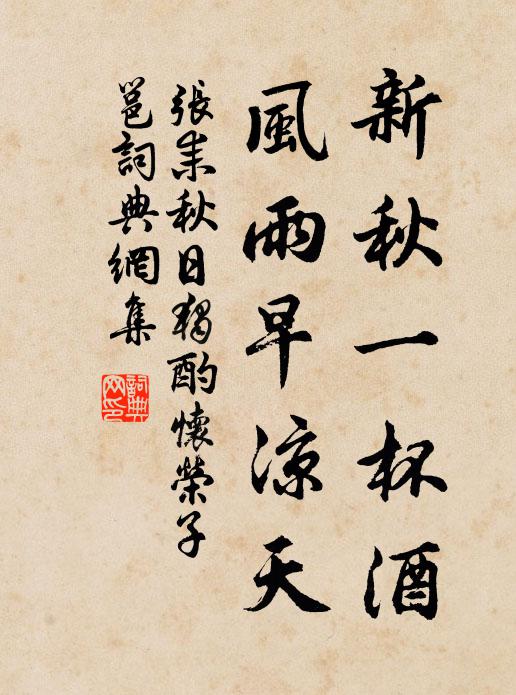 新秋一杯酒
風雨早涼天
張耒秋日獨酌懷榮子
邕詞典網集
詞典
网印